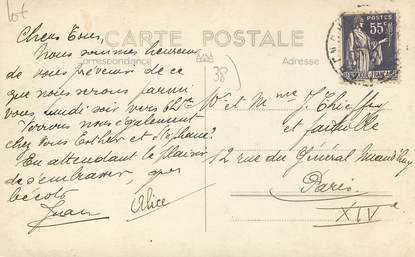 lot
CARTE POSTALE
Correspondance
Adresse
POSTES
55c
38
Chers Tous,
Nous sommes heureux
de vous prévenir de ce
que nous serons parmi
vous lundi soir vers
Verrons nous également
chez vous Esther et
En attendant le plaisir
de s'embrasser, gros
bécots
Juan Alice
Mr et Mme J.
et famille
12 rue du Général
Paris
XIVe